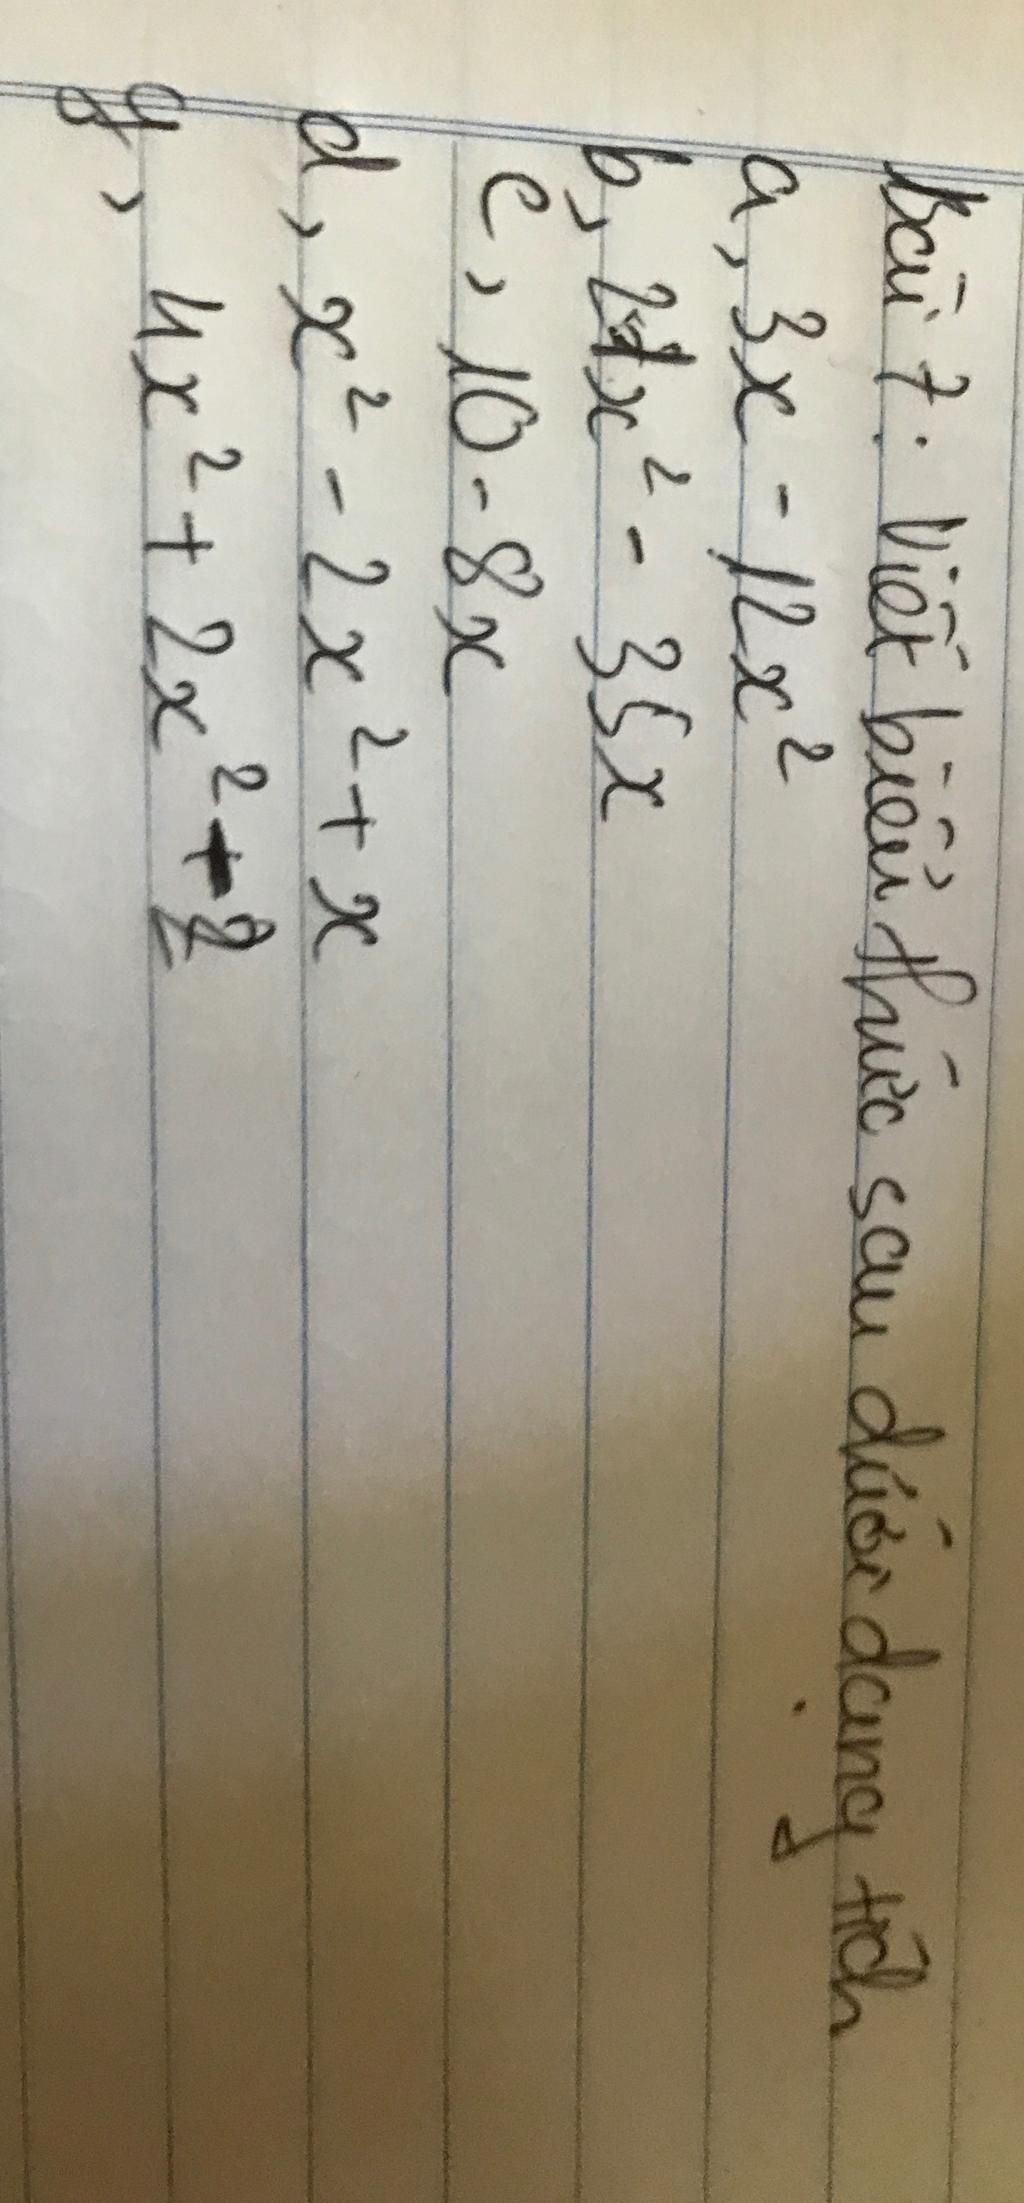 Bài 7: Viết biểu thức sau dưới dạng tích
a, 3x - 12x²
b, 21x² - 35x
c, 10 - 8x
d, x² - 2x² + x
g, 4x² + 2x² + 2